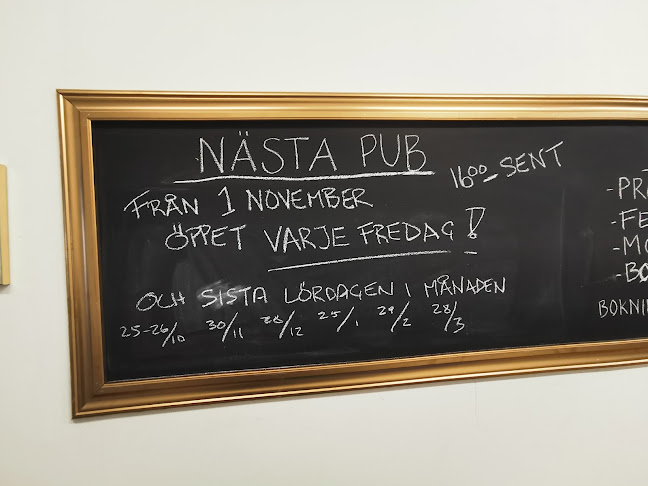 NÄSTA PUB
16⁰⁰-SENT
FRÅN 1 NOVEMBER
ÖPPET VARJE FREDAG!
OCH SISTA LÖRDAGEN I MÅNADEN
25-26/10 30/11 28/12 25/1 29/2 28/3
-PR
-FE
-MO
-BO
BOKNI